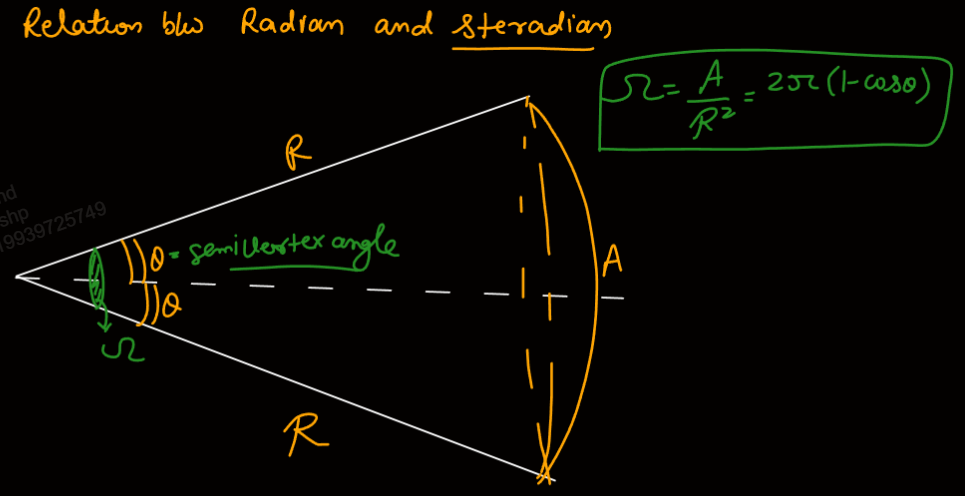 Relation b/w Radian and steradian
Ω = A/R² = 2π(1-cosθ)
R
19939725749
θ = semivertex angle
A
θ
Ω
R